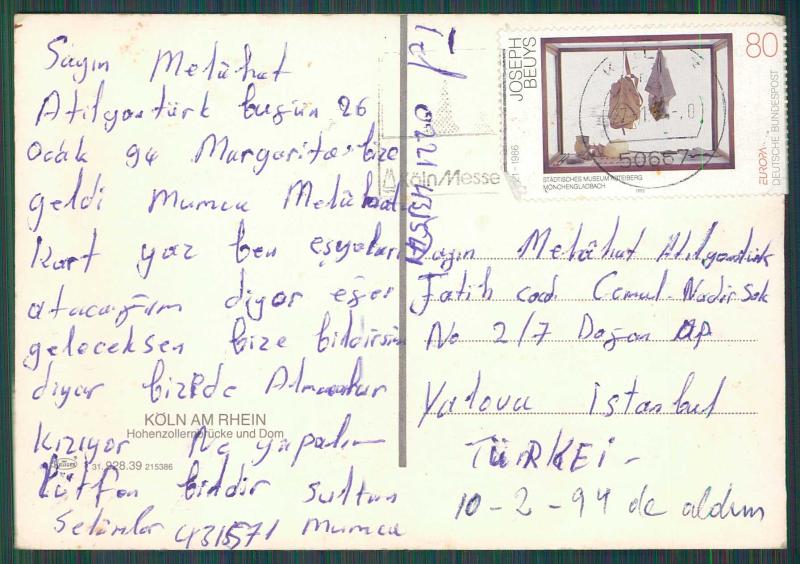 Sayın Melûhat
Atilgantürk bugün 26
Ocak 94 Margarita bize
geldi Mumca Melûhata
Kart yaz ben eşyaları
atacağım diyor eğer
geleceksen bize bildirsin
diyor bizde Almanlar
kızıyor Ne yapalım
Lütfen bildir Sultan
Selâmlar 431571 Mumca
KÖLN AM RHEIN
Hohenzollernbrücke und Dom
31.928.39 215386
Tel 0221 431571
Köln/Messe
JOSEPH
BEUYS
1921-1986
80
STÄDTISCHES MUSEUM ABTEIBERG
MÖNCHENGLADBACH
EUROPA
DEUTSCHE BUNDESPOST
50667
Sayın Melûhat Atılgantürk
Fatih cad. Cemal Nadir Sok
No 2/7 Doğan AP
Yalova İstanbul
TÜRKEİ -
10-2-94 de aldım